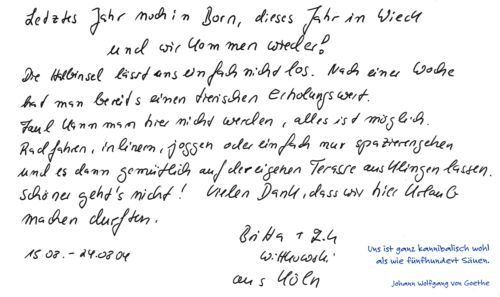 Letztes Jahr noch in Born, dieses Jahr in Wieck
und wir kommen wieder!
Die Halbinsel lässt uns einfach nicht los. Nach einer Woche
hat man bereits einen tierischen Erholungswert.
Faul kann man hier nicht werden, alles ist möglich.
Radfahren, inlinern, joggen oder einfach nur spazierengehen
und es dann gemütlich auf der eigenen Terasse ausklingen lassen.
Schöner geht's nicht! Vielen Dank, dass wir hier Urlaub
machen durften.
Britta +
15.08. – 24.08.04
Wittkowski
aus Köln
Uns ist ganz kannibalisch wohl
als wie fünfhundert Säuen.
Johann Wolfgang von Goethe